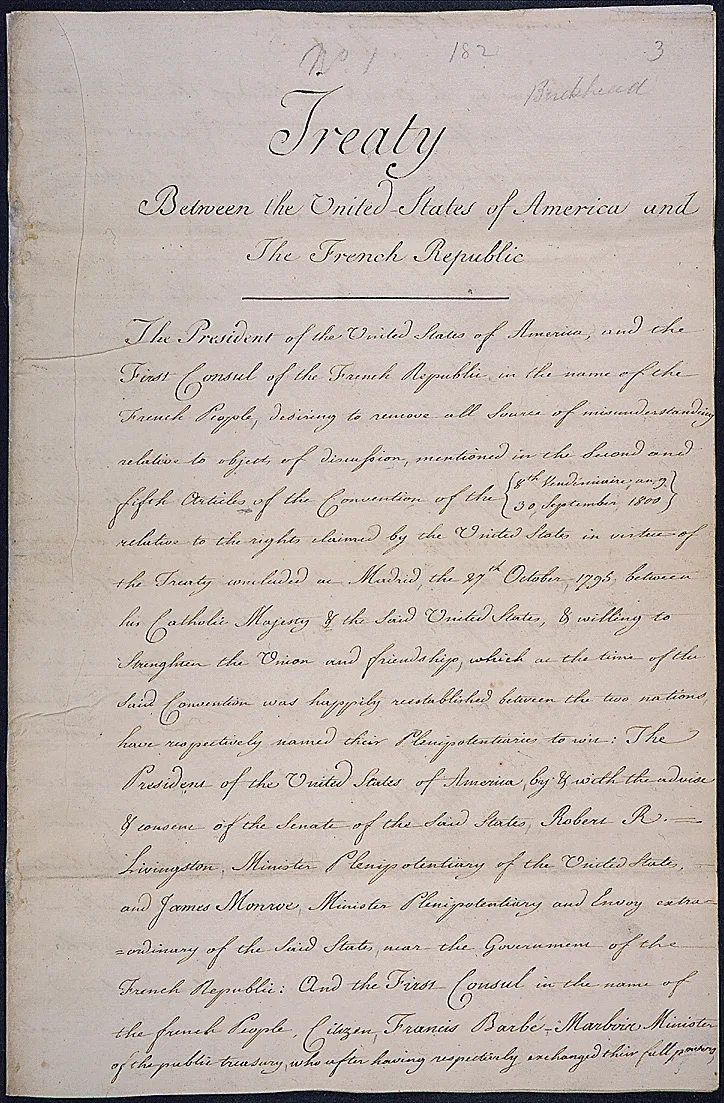 No 1 182 3
Treaty
Between the United States of America and
The French Republic
The President of the United States of America, and the
First Consul of the French Republic in the name of the
French People, desiring to remove all Source of misunderstanding
relative to objects of discussion, mentioned in the Second and
fifth Articles of the Convention of the {8th Vendémiaire an 9
30 September 1800}
relative to the rights claimed by the United States in virtue of
the Treaty concluded at Madrid, the 27th October, 1795, between
his Catholic Majesty & the Said United States, & willing to
Strenghten the Union and friendship, which at the time of the
Said Convention was happily reestablished between the two nations,
have respectively named their Plenipotentiaries to wit: The
President of the United States of America, by & with the advise
& consent of the Senate of the Said States, Robert R.
Livingston, Minister Plenipotentiary of the United States,
and James Monroe, Minister Plenipotentiary and Envoy extra=
=ordinary of the Said States, near the Government of the
French Republic: And the First Consul in the name of
the french People, Citizen, Francis Barbé-Marbois Minister
of the public treasury, who after having respectively exchanged their full powers